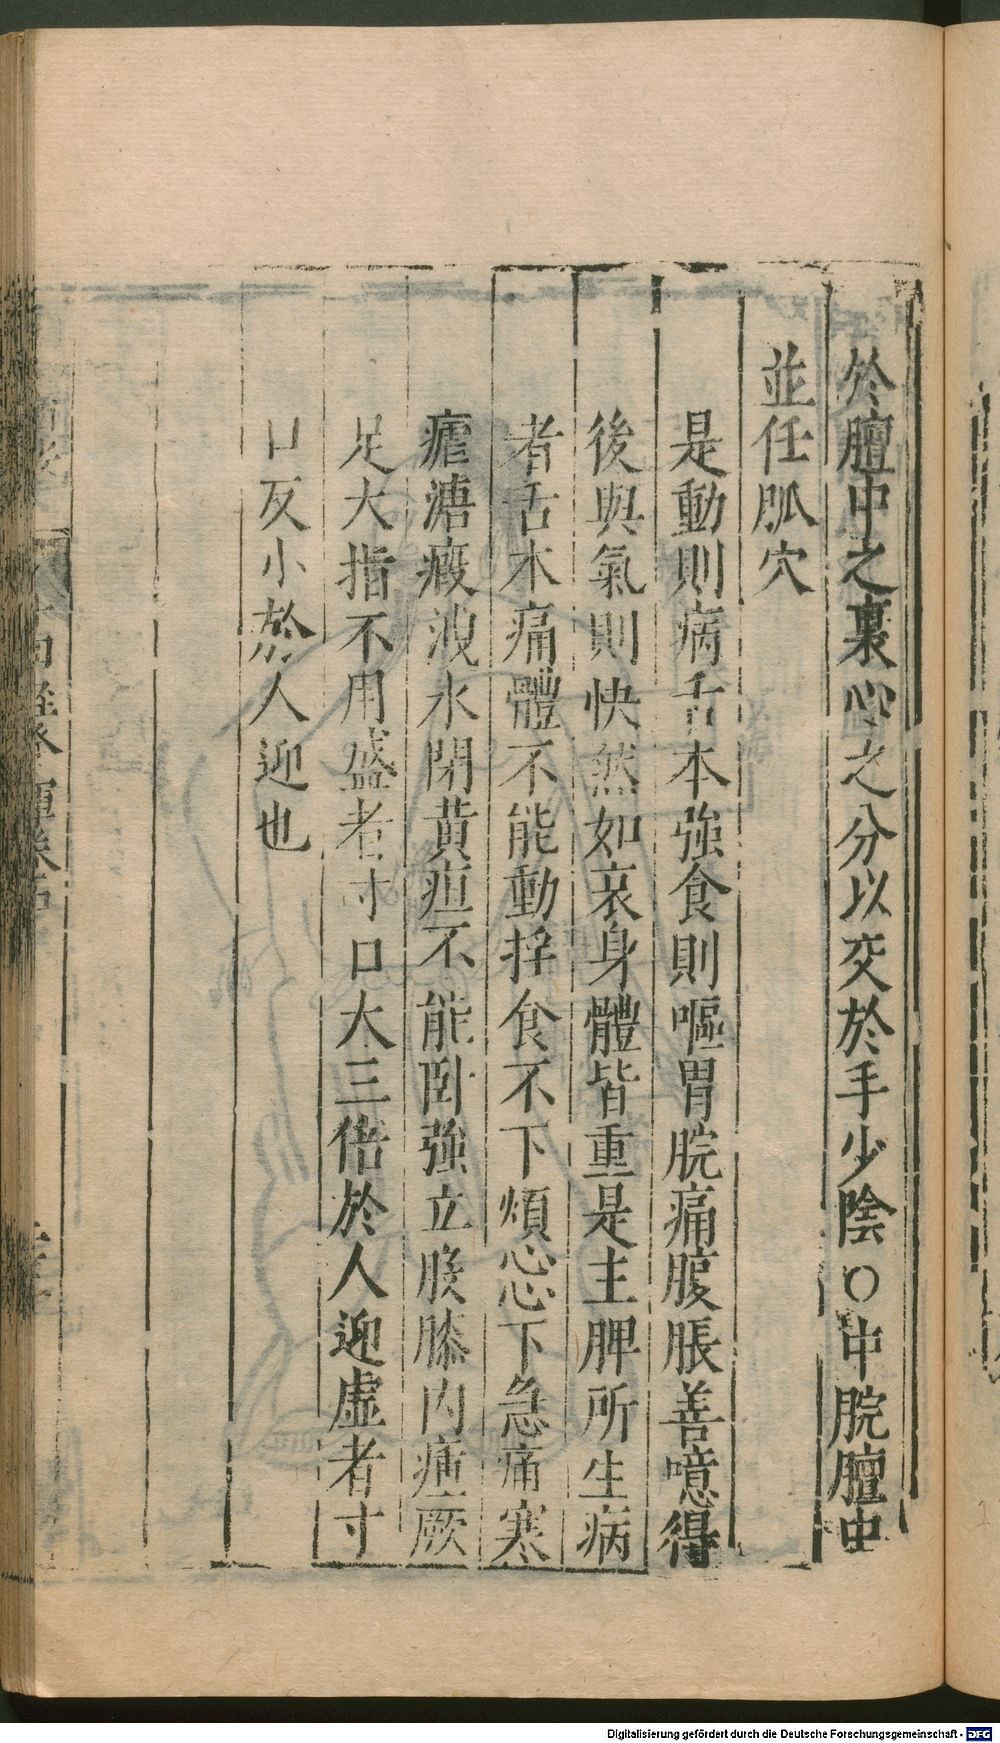 於膻中之裏心之分以交於手少陰〇中脘膻中
並任脈穴
是動則病舌本強食則嘔胃脘痛腹脹善噫得
後與氣則快然如衰身體皆重是主脾所生病
者舌本痛體不能動搖食不下煩心心下急痛寒
瘧溏瘕洩水閉黃疸不能卧強立股膝内瘇厥
足大指不用盛者寸口大三倍於人迎虛者寸
口反小於人迎也
Digitalisierung gefördert durch die Deutsche Forschungsgemeinschaft - DFG